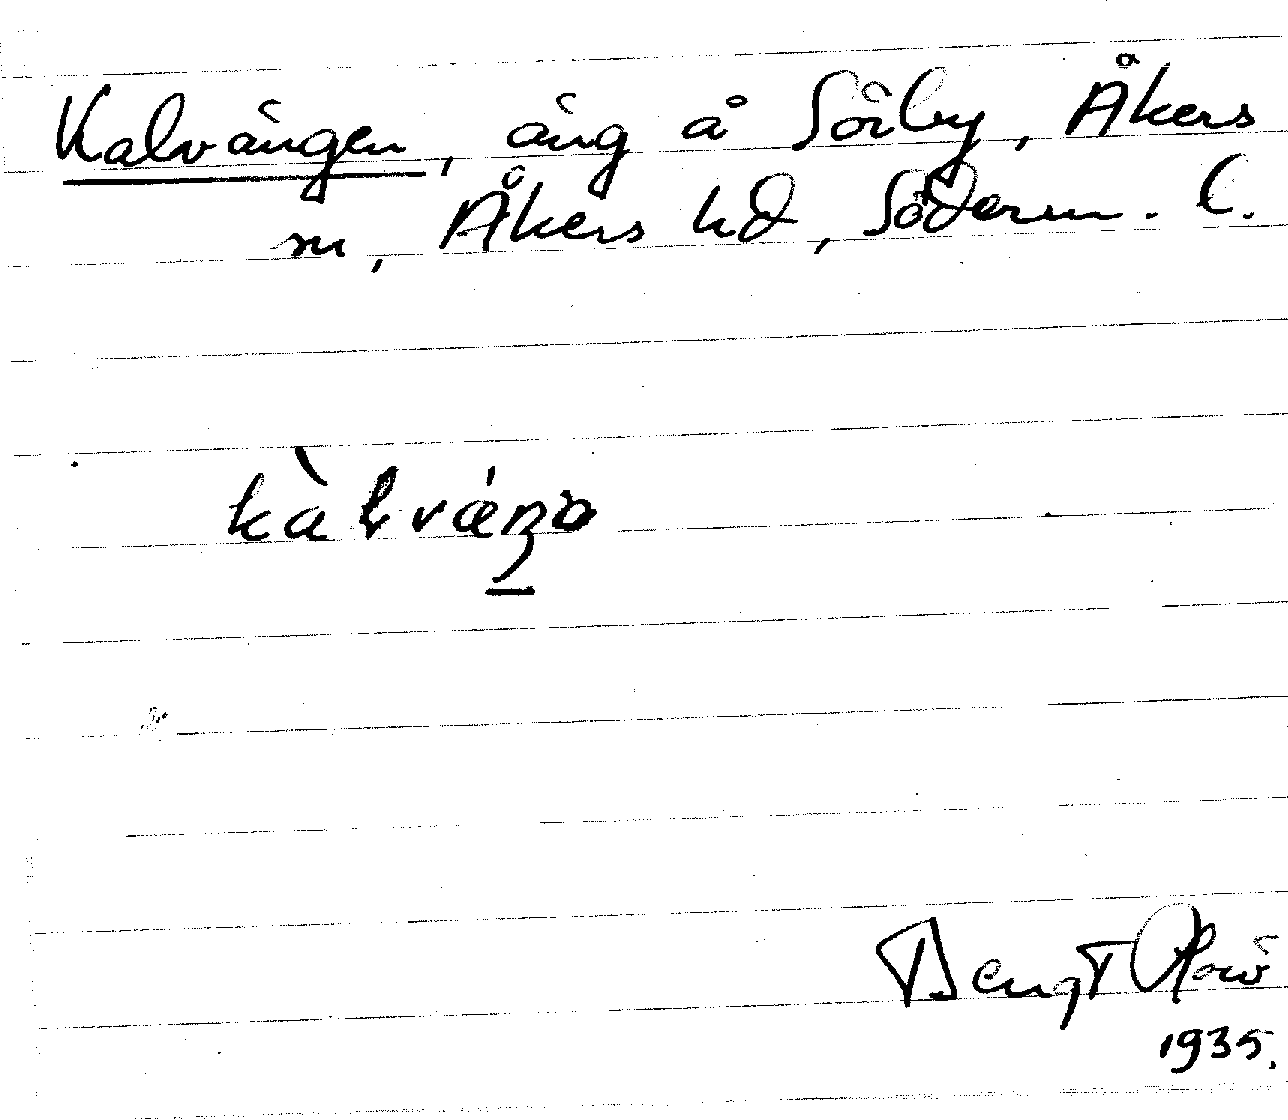 Kalvängen, äng å Sörby, Åkers
sn, Åkers hd, Söderm. l.
Bengt
1935.